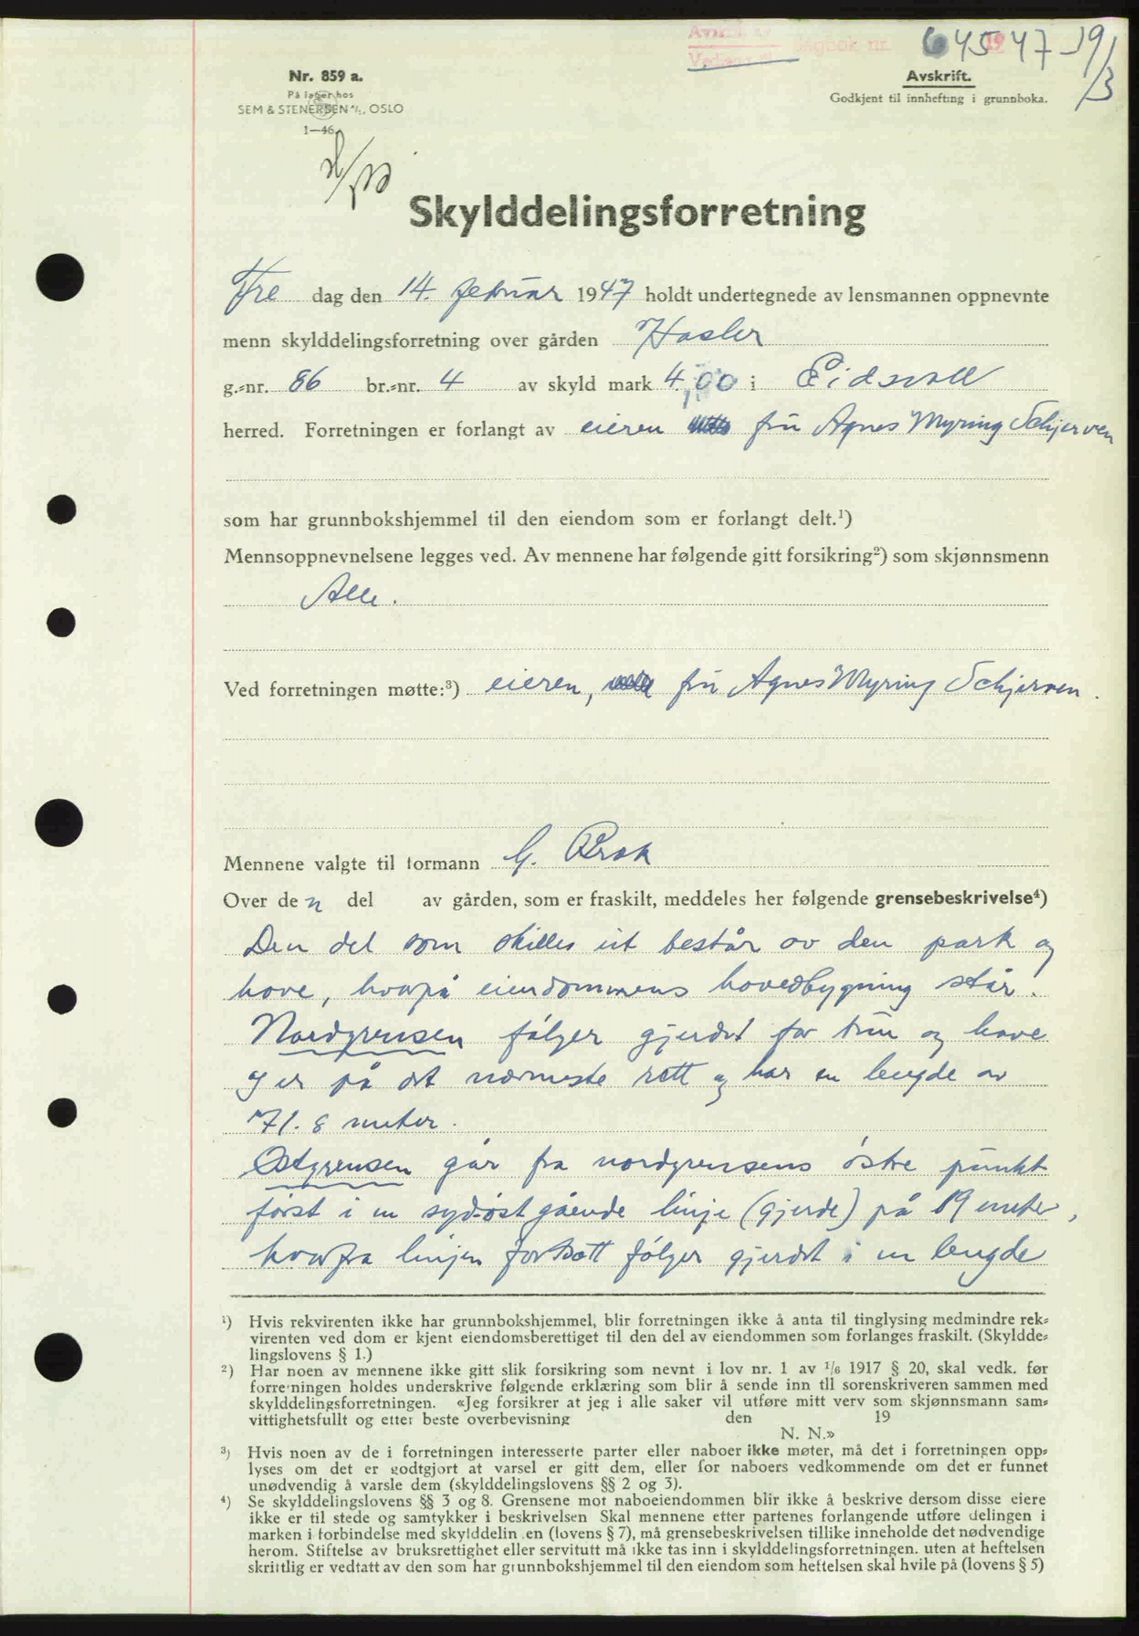 645 47 19/3
Nr. 859 a.
Avskrift.
På lager hos
Godkjent til innhefting i grunnboka.
SEM & STENERSEN A/S, OSLO
1—46
Skylddelingsforretning
Fre dag den 14. februar 1947 holdt undertegnede av lensmannen oppnevnte
menn skylddelingsforretning over gården Hasler
g.-nr. 86 br.-nr. 4 av skyld mark 4,00 i Eidsvoll
herred. Forretningen er forlangt av eieren fru Agnes Myring Schjerven
som har grunnbokshjemmel til den eiendom som er forlangt delt.¹)
Mennsoppnevnelsene legges ved. Av mennene har følgende gitt forsikring²) som skjønnsmenn
Alle.
Ved forretningen møtte:³) eieren, fru Agnes Myring Schjerven.
Mennene valgte til formann G. Brok
Over den del av gården, som er fraskilt, meddeles her følgende grensebeskrivelse⁴)
Den del som skilles ut består av den park og
have, hvorpå eiendommens hovedbygning står.
Nordgrensen følger gjerdet for tun og have
og er på det nærmeste rett og har en lengde av
71.8 meter.
Østgrensen går fra nordgrensens østre punkt
først i en sydøst gående linje (gjerde) på 19 meter,
hvorfra linjen fortsatt følger gjerdet i en lengde
¹) Hvis rekvirenten ikke har grunnbokshjemmel, blir forretningen ikke å anta til tinglysing medmindre rek-
virenten ved dom er kjent eiendomsberettiget til den del av eiendommen som forlanges fraskilt. (Skyldde-
lingslovens § 1.)
²) Har noen av mennene ikke gitt slik forsikring som nevnt i lov nr. 1 av 1/6 1917 § 20, skal vedk. før
forretningen holdes underskrive følgende erklæring som blir å sende inn til sorenskriveren sammen med
skylddelingsforretningen. «Jeg forsikrer at jeg i alle saker vil utføre mitt verv som skjønnsmann sam-
vittighetsfullt og etter beste overbevisning den 19
N. N.»
³) Hvis noen av de i forretningen interesserte parter eller naboer ikke møter, må det i forretningen opp-
lyses om det er godtgjort at varsel er gitt dem, eller for naboers vedkommende om det er funnet
unødvendig å varsle dem (skylddelingslovens §§ 2 og 3).
⁴) Se skylddelingslovens §§ 3 og 8. Grensene mot naboeiendommen blir ikke å beskrive dersom disse eiere
ikke er til stede og samtykker i beskrivelsen Skal mennene etter partenes forlangende utføre delingen i
marken i forbindelse med skylddelin en (lovens § 7), må grensebeskrivelsen tillike inneholde det nødvendige
herom. Stiftelse av bruksrettighet eller servitutt må ikke tas inn i skylddelingsforretningen. uten at heftelsen
skriftlig er vedtatt av den som har grunnbokshjemmel til den eiendom som heftelsen skal hvile på (lovens § 5)